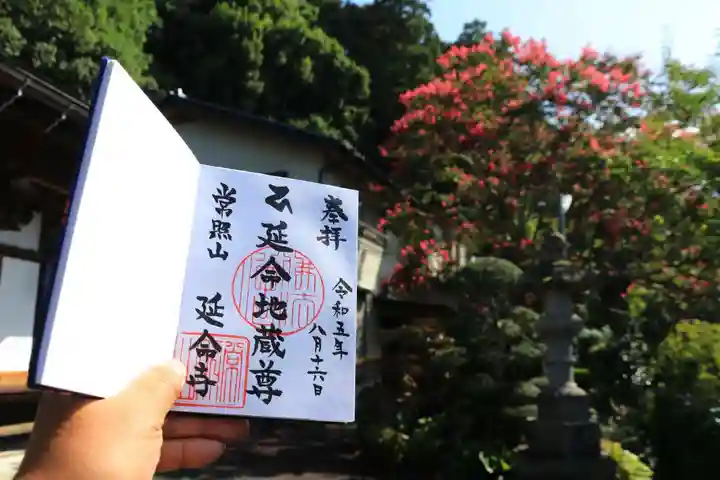 奉拝
令和五年
八月十六日
延命地蔵尊
常照山
延命寺